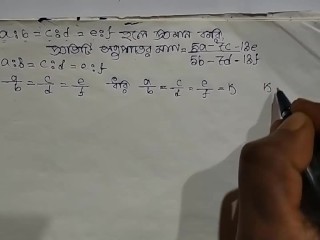 a:b = c:d = e:f হলে প্রমান করি,
প্রতিটি অনুপাতের মান = 5a-7c-13e / 5b-7d-13f
a:b = c:d = e:f
a/b = c/d = e/f ধরি a/b = c/d = e/f = k k